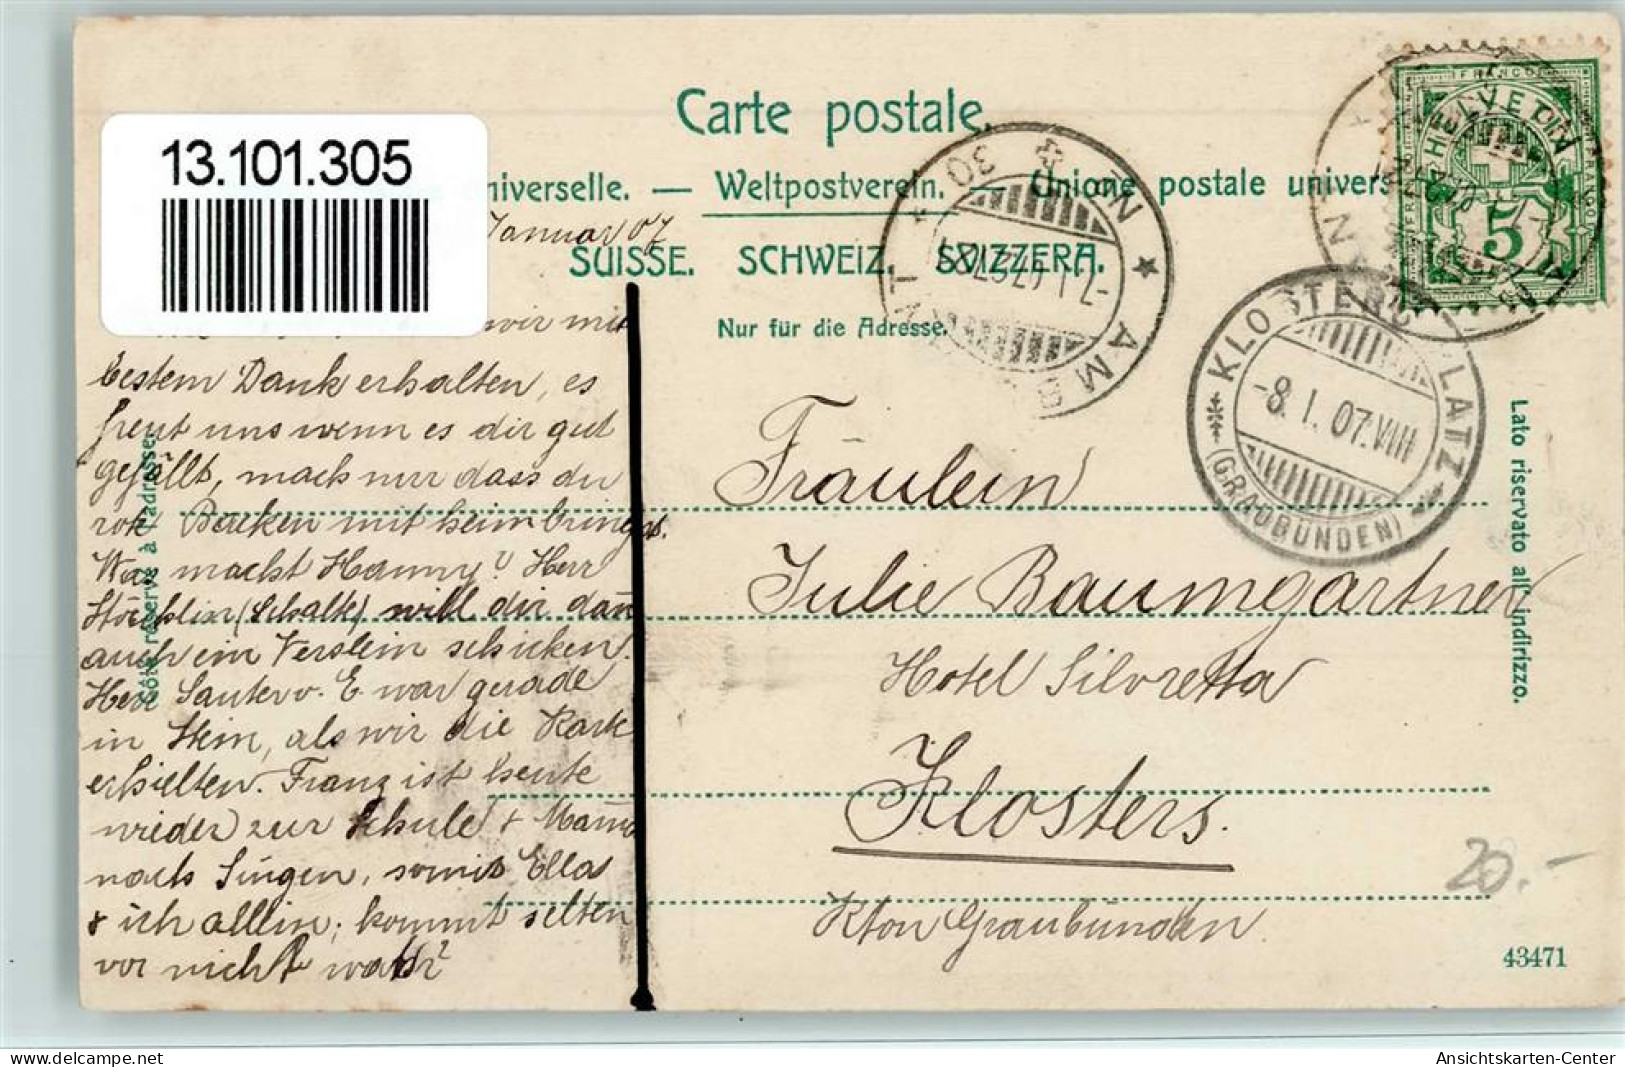 Carte postale.
13.101.305
niverselle. — Weltpostverein. — Unione postale univers
Januar 07
SUISSE. SCHWEIZ. SVIZZERA.
Nur für die Adresse.
FRANCO
HELVETIA
5
AMBT
KLOSTERS PLATZ
-8. I. 07. VIII
(GRAUBÜNDEN)
wir mit
bestem Dank erhalten, es
freut uns wenn es dir gut
gefällt, mach nur dass du
rote Backen mit heim bringst.
Was macht Hanny? Herr
(Schalk) will dir dann
auch ein Verslein schicken.
Herr Sauter v. E. war gerade
in Stein, als wir die Karte
erhielten. Franz ist heute
wieder zur Schule & Mama
nach Singen, somit Ella
& ich allein; kommt selten
vor nicht wahr?
Côté réservé à l'adresse.
Fräulein
Julie Baumgartner
Hotel Silvretta
Klosters.
Kton Graubünden.
Lato riservato all' indirizzo.
20.-
43471
Ansichtskarten-Center